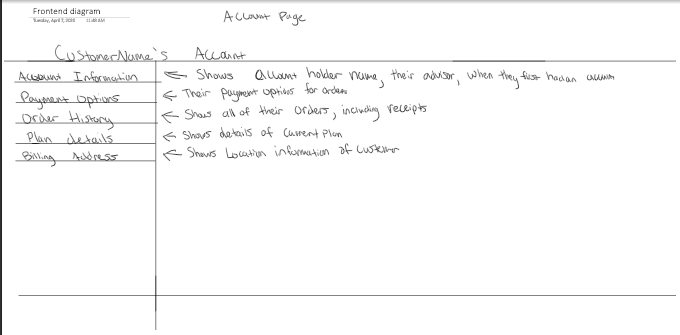 Frontend diagram
Tuesday, April 7, 2020 11:48 AM
Account Page
CustomerName's Account
Account Information ← Shows account holder name, their advisor, when they first had an account
Payment Options ← Their payment options for orders
Order History ← Shows all of their orders, including receipts
Plan details ← Shows details of current plan
Billing Address ← Shows Location information of customer